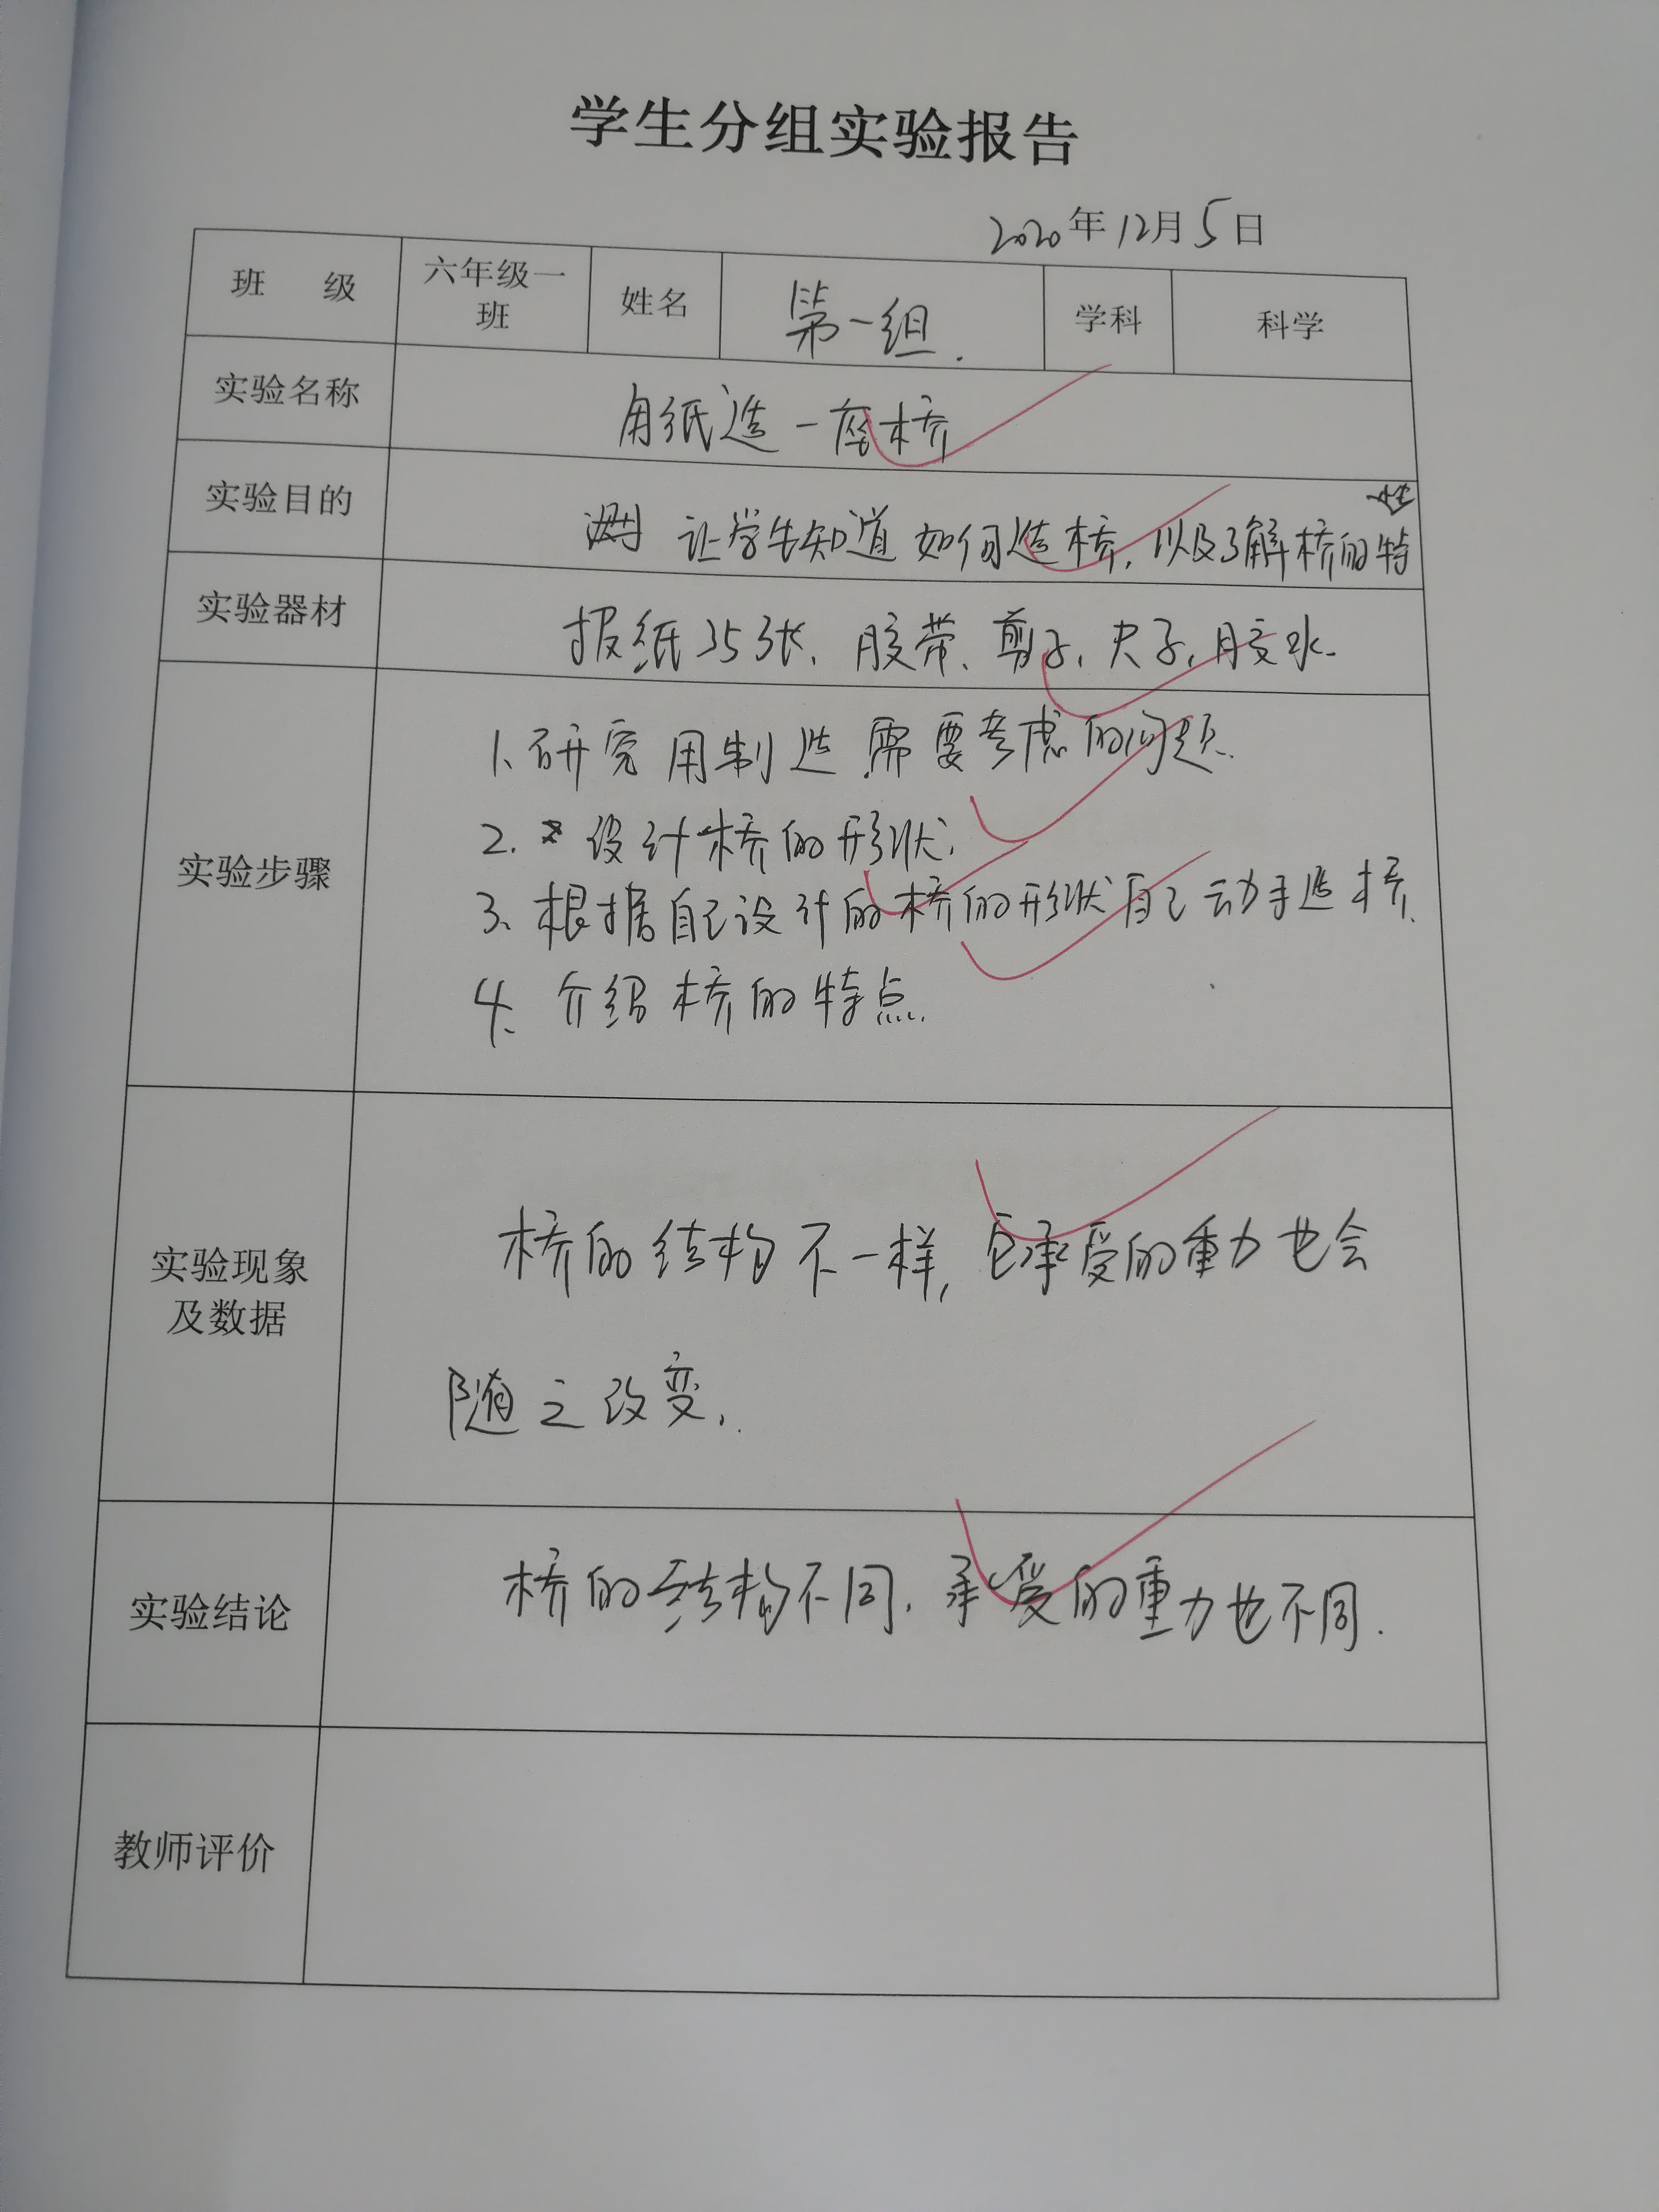 学生分组实验报告
2020年12月5日
班 级 六年级一班 姓名 第一组. 学科 科学
实验名称 用纸造一座桥
实验目的 让学生知道如何造桥,以及了解桥的特
实验器材 报纸35张、胶带、剪子、尺子、胶水.
实验步骤
1、研究用制造需要考虑的问题.
2、设计桥的形状.
3、根据自己设计的桥的形状自己动手造桥.
4、介绍桥的特点.
实验现象及数据
桥的结构不一样,它承受的重力也会
随之改变.
实验结论 桥的结构不同,承受的重力也不同.
教师评价